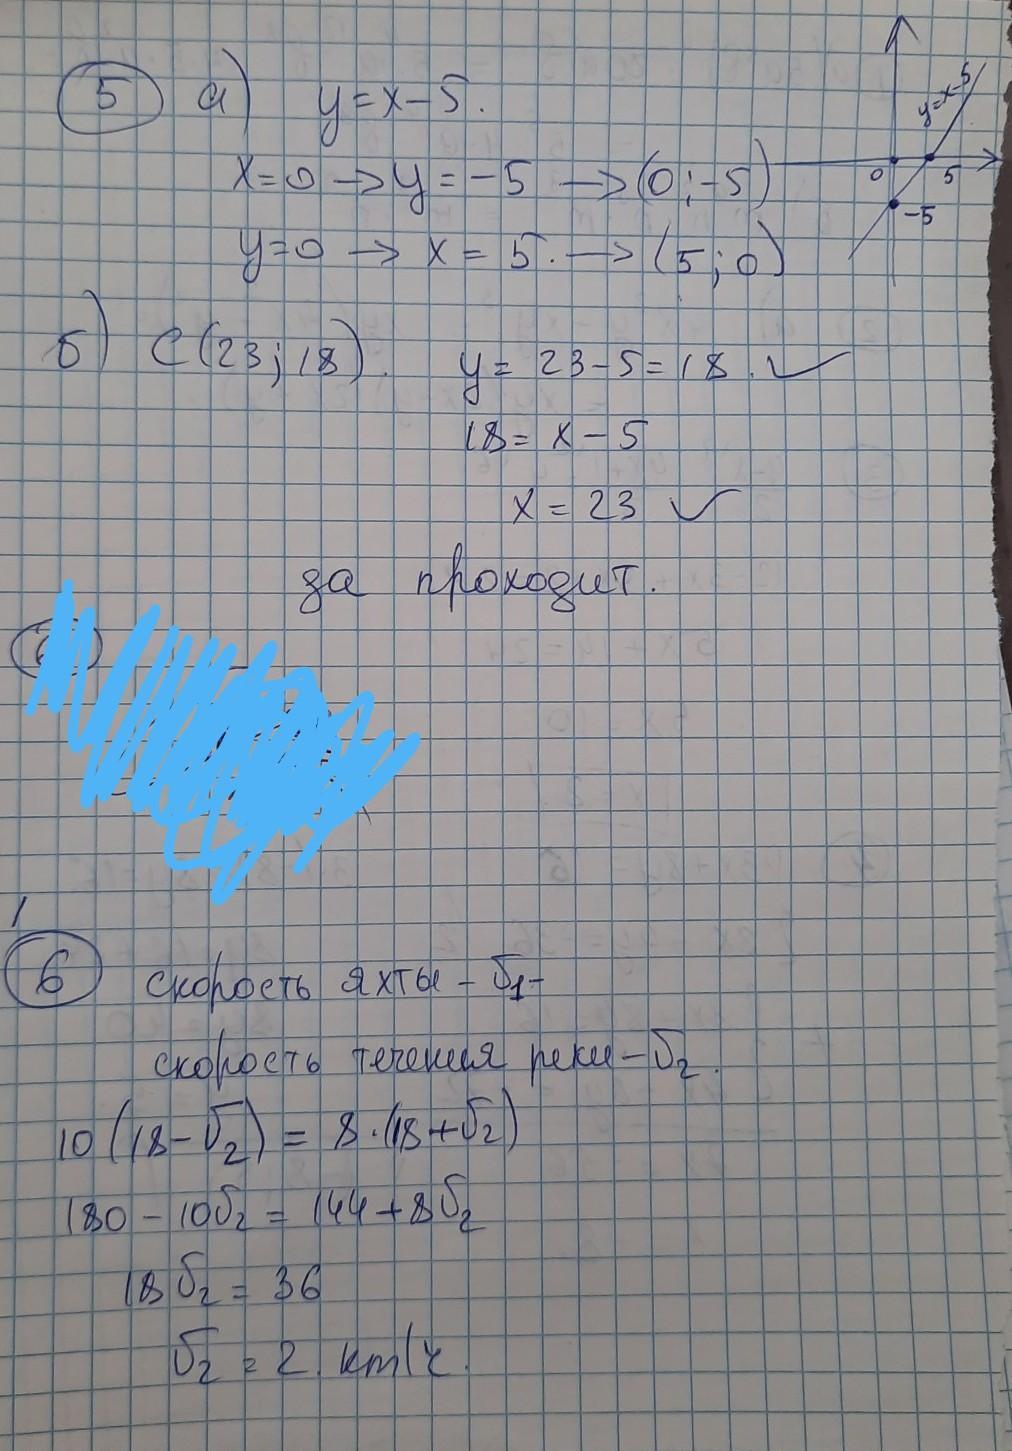 5 а) y=x-5.
x=0 → y=-5 → (0;-5)
y=0 → x=5. → (5;0)
y=x-5
0
5
-5
б) C(23;18). y=23-5=18. ✓
18=x-5
x=23 ✓
за проходит.
6 скорость яхты - V1-
скорость течения реки - V2.
10(18-V2)=8·(18+V2)
180-10V2=144+8V2
18V2=36
V2=2 km/ч.